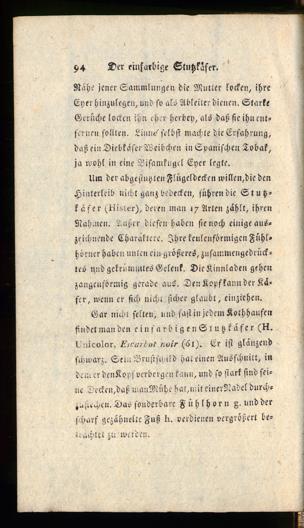 94 Der einfarbige Stutzkäfer.
Nähe jener Sammlungen die Mutter locken, ihre
Eyer hinzulegen, und so als Ableiter dienen. Starke
Gerüche locken ihn eher herbey, als daß sie ihn ent-
fernen sollten. Linne' selbst machte die Erfahrung,
daß ein Diebkäfer Weibchen in Spanischen Tobak,
ja wohl in eine Bisamkugel Eyer legte.
Um der abgestutzten Flügeldecken willen, die den
Hinterleib nicht ganz bedecken, führen die Stutz-
käfer (Hister), deren man 17 Arten zählt, ihren
Nahmen. Außer diesen haben sie noch einige aus-
zeichnende Charaktere. Ihre keulenförmigen Fühl-
hörner haben unten ein größeres, zusammengedrück-
tes und gekrümmtes Gelenk. Die Kinnladen gehen
zangenförmig gerade aus. Den Kopf kann der Kä-
fer, wenn er sich nicht sicher glaubt, einziehen.
Gar nicht selten, und fast in jedem Kothhaufen
findet man den einfarbigen Stutzkäfer (H.
Unicolor, Escarbot noir (61). Er ist glänzend
schwarz. Sein Brustschild hat einen Ausschnitt, in
dem er den Kopf verbergen kann, und so stark sind sei-
ne Decken, daß man Mühe hat, mit einer Nadel durch-
zustechen. Das sonderbare Fühlhorn g. und der
scharf gezähnelte Fuß h. verdienen vergrößert be-
trachtet zu werden.